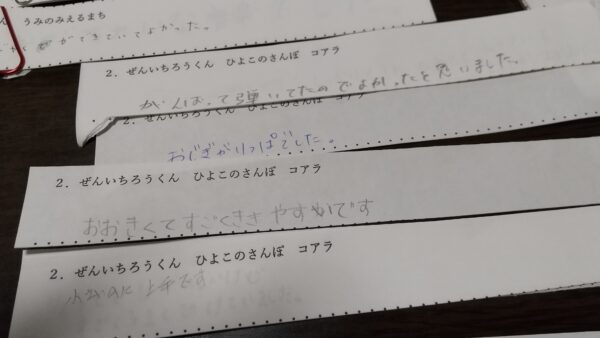 うみのみえるまち
ができていてよかった。
2．ぜんいちろうくん　ひよこのさんぽ　コアラ
がんばって弾いてたのでよかったと思いました。
2．ぜんいちろうくん　ひよこのさんぽ　コアラ
おじぎがりっぱでした。
2．ぜんいちろうくん　ひよこのさんぽ　コアラ
おおきくてすごくききやすいです
2．ぜんいちろうくん　ひよこのさんぽ　コアラ
小さいのに上手です